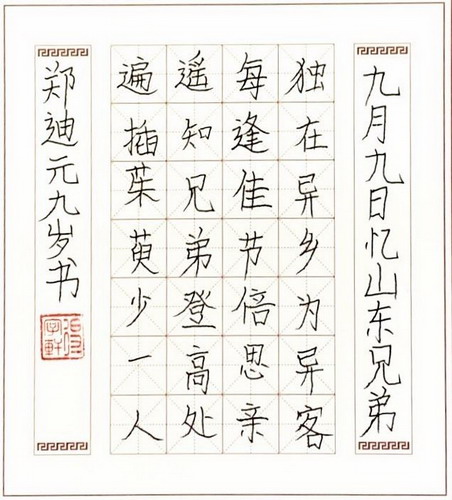 九月九日忆山东兄弟
独在异乡为异客
每逢佳节倍思亲
遥知兄弟登高处
遍插茱萸少一人
郑迪元九岁书